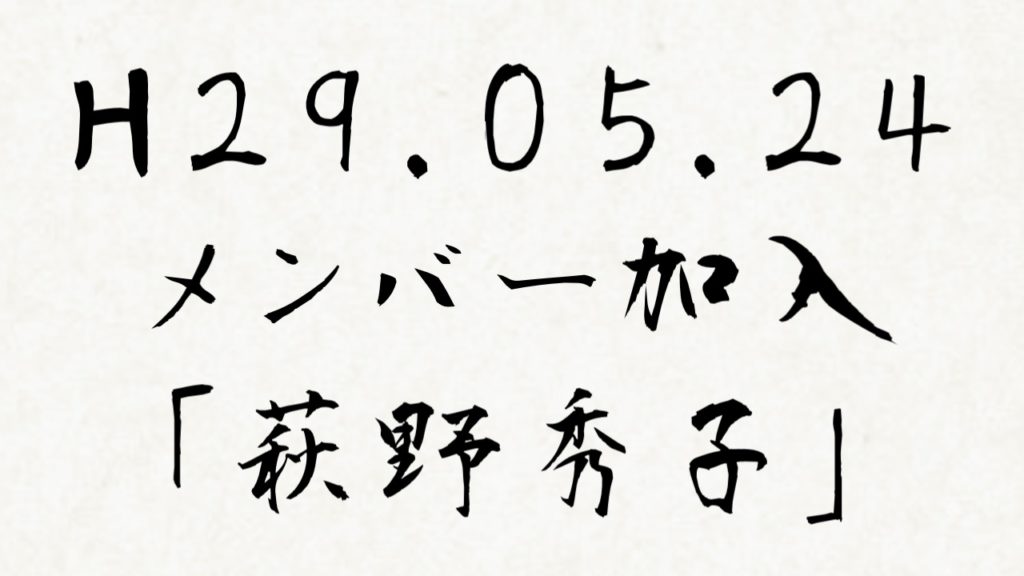 H29.05.24
メンバー加入
「萩野秀子」